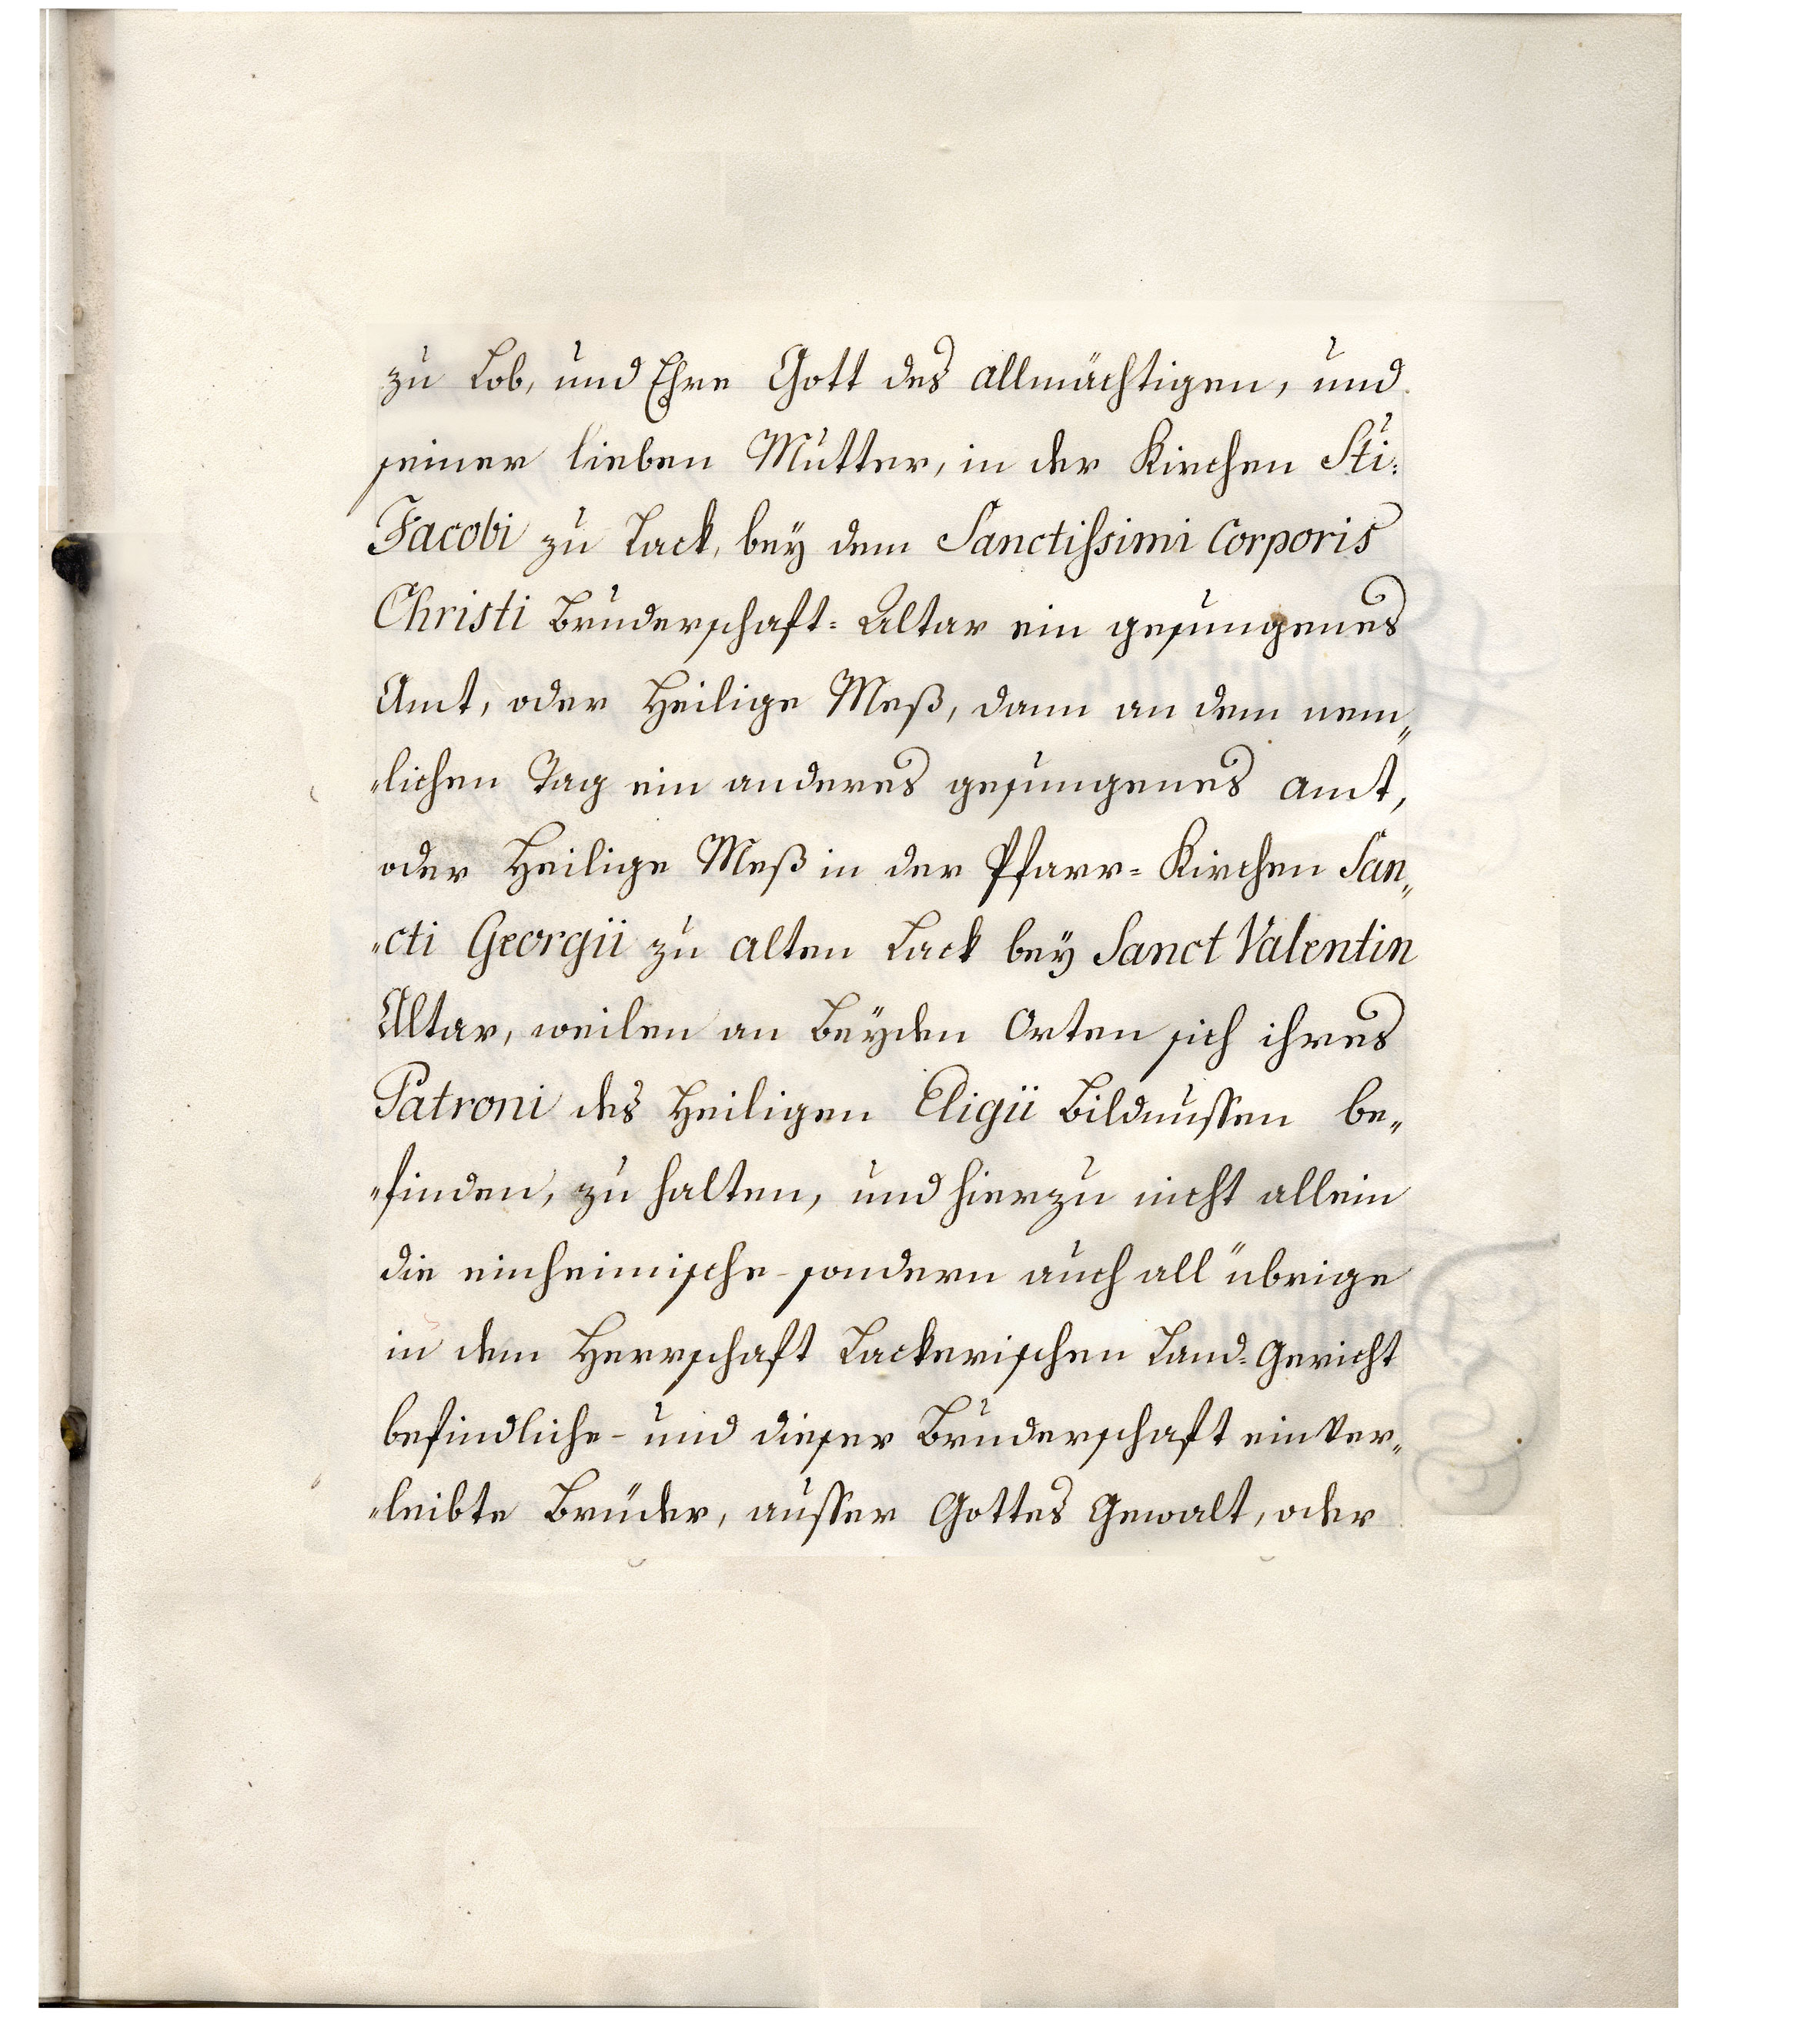 zu Lob, und Ehre Gott des allmächtigen, und
seiner lieben Mutter, in der Kirchen Sti:
Jacobi zu Lack, bey dem Sanctissimi Corporis
Christi Bruderschaft= Altar ein gesungenes
Amt, oder Heilige Meß, dann an dem nem„
„lichen Tag ein anderes gesungenes Amt,
oder Heilige Meß in der Pfarr= Kirchen San„
„cti Georgii zu alten Lack bey Sanct Valentin
Altar, weilen an Beyden Orten sich ihres
Patroni des Heiligen Eligii Bildnussen be„
„finden, zu halten, und hierzu nicht allein
die einheimische- sondern auch all übrige
in dem Herrschaft Lackerischen Land=Gericht
befindliche- und dieser Bruderschaft einver„
„leibte Brüder, ausser Gottes Gewalt, oder